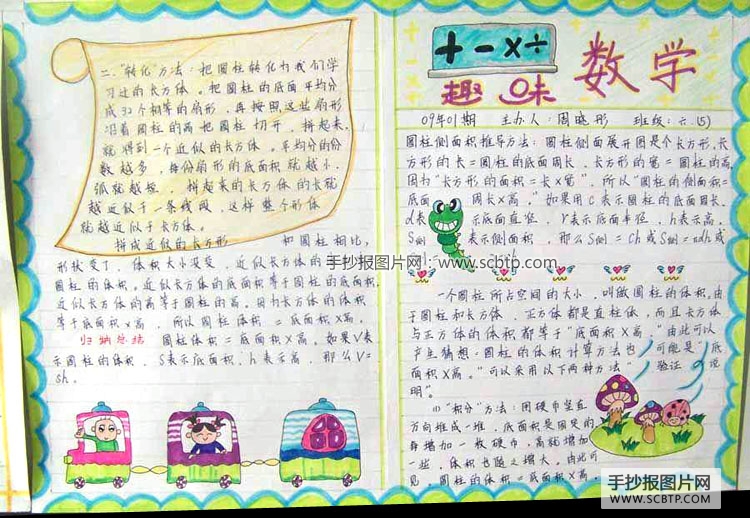 二、"转化"方法：把圆柱转化为我们学
习过的长方体。把圆柱的底面平均分
成32个相等的扇形，再按照这些扇形
沿着圆柱的高把圆柱切开，拼起来，
就得到一个近似的长方体。平均分的份
数越多，每份扇形的底面积就越小，
弧就越短，拼起来的长方体的长就
越近似于一条线段，这样整个形体
就越近似于长方体。
拼成近似的长方形 和圆柱相比，
形状变了，体积大小没变，近似长方体的
圆柱的体积。近似长方体的底面积等于圆柱的底面积，
近似长方体的高等于圆柱的高。因为长方体的体积
等于底面积×高，所以圆柱体积＝底面积×高。
归纳总结 圆柱体积＝底面积×高。如果V表
示圆柱的体积，S表示底面积，h表示高，那么V=
sh。
+-×÷
趣味数学
09年01期 主办人：周晓彤 班级：六(5)
圆柱侧面积推导方法：圆柱侧面展开图是个长方形，长
方形的长＝圆柱的底面周长，长方形的宽＝圆柱的高，
因为"长方形的面积＝长×宽"，所以"圆柱的侧面积＝
底面 周长×高。"如果用C表示圆柱的底面周长，
d表 示底面直径，r表示底面半径，h表示高，
S侧 表示侧面积，那么S侧=ch或S侧=πdh或
手抄报图片网：www.scbtp.com
一个圆柱所占空间的大小，叫做圆柱的体积。由
于圆柱和长方体、正方体都是直柱体，而且长方体
与正方体的体积都等于"底面积×高。"由此可以
产生猜想：圆柱的体积计算方法也 可能是"底
面积×高。"可以采用以下两种方法 验证 说
明"。
(1)"积分"方法：用硬币竖直
方向堆成一堆，底面积是固定的
每增加一枚硬币，高就增加
一些，体积也随之增大。由此可
见，圆柱的体积＝底面积×高。
手抄报图片网
WWW.SCBTP.COM